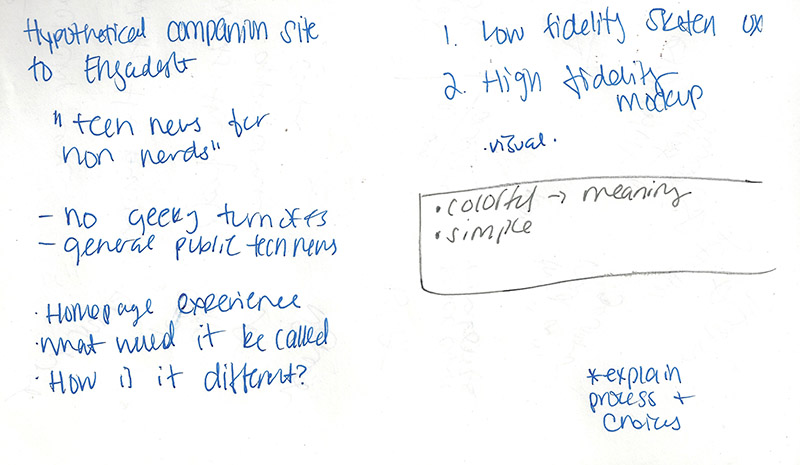 Hypothetical companion site
to Engadget
"tech news for
non nerds"
- no geeky turnoffs
- general public tech news
• Homepage experience
• What would it be called
• How is it different?
1. Low fidelity sketch ux
2. High fidelity
mockup
• visual •
• colorful → meaning
• simple
*explain
process +
choices